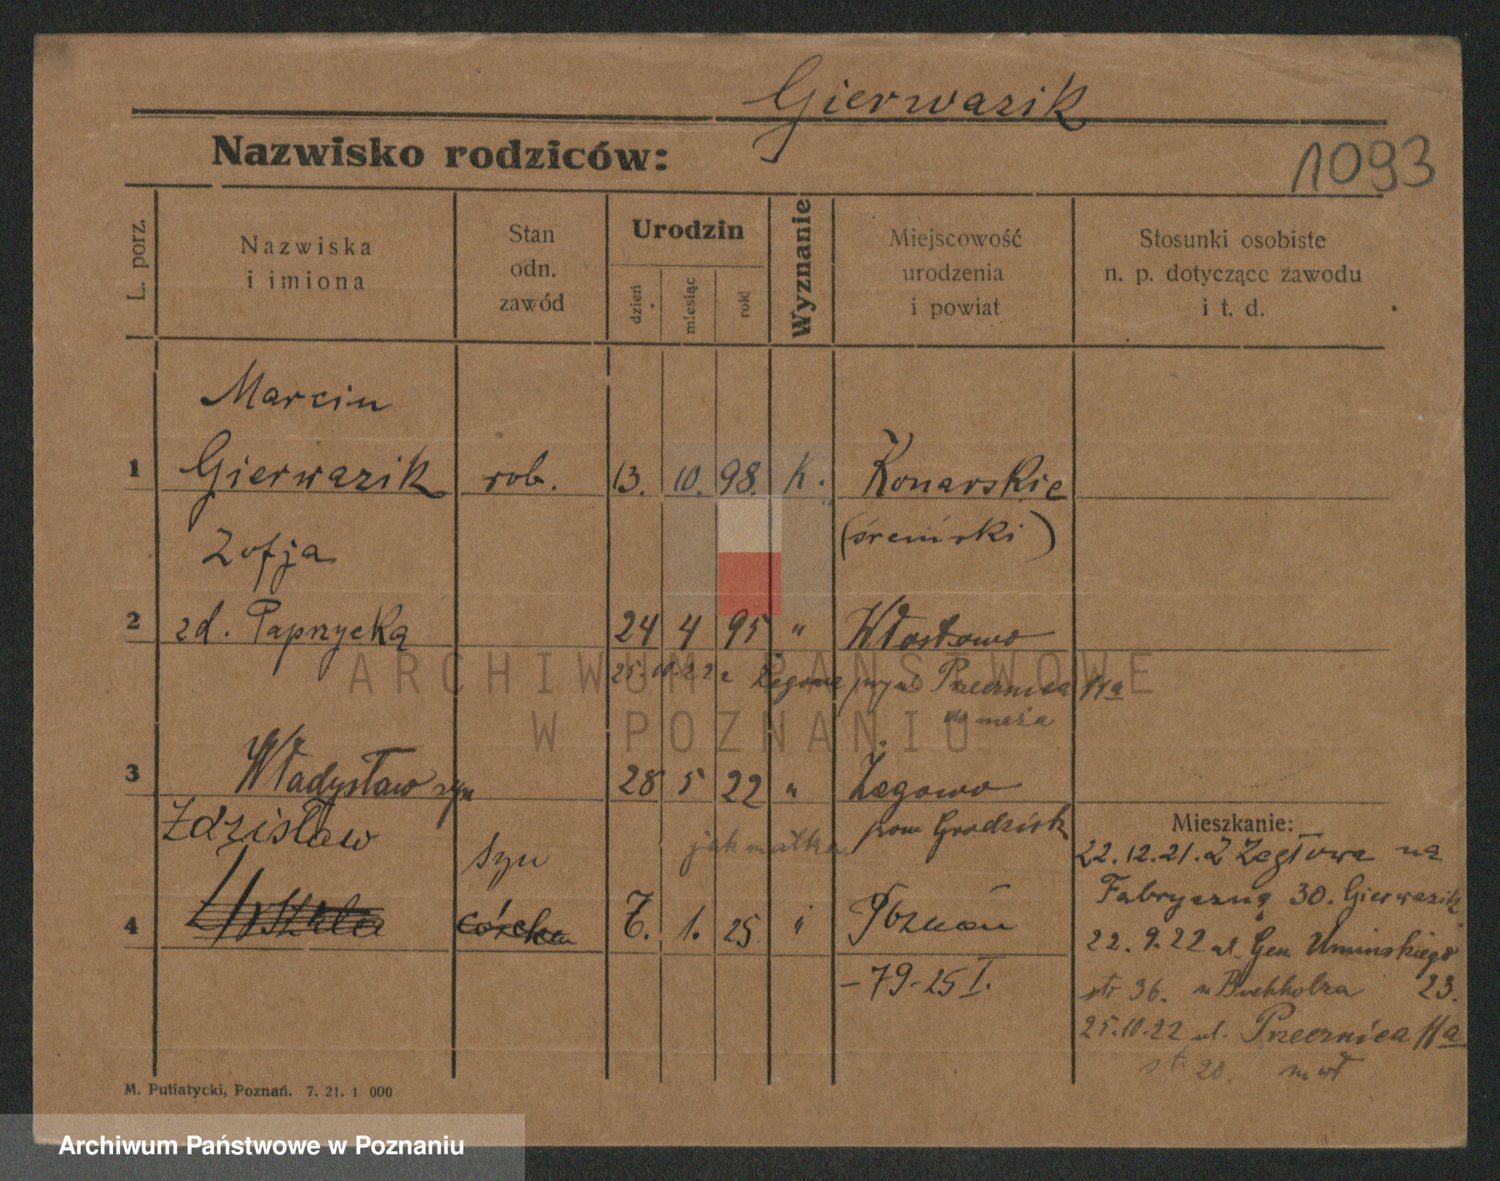 Gierwazik
Nazwisko rodziców:
1093
L. porz.
Nazwiska
i imiona
Stan
odn.
zawód
Urodzin
dzień
miesiąc
rok
Wyznanie
Miejscowość
urodzenia
i powiat
Stosunki osobiste
n. p. dotyczące zawodu
i t. d.
Marcin
1 Gierwazik rob. 13. 10. 98. K. Konarskie
Zofja (śremski)
2 zd. Paprzycką 24 4 95 " Włostowo
25.10.22 z Żegowa Przecznica 11a
do męża
3 Władysław syn 28 5 22 " Żegowo
pow Grodzisk
Zdzisław syn jak matka.
4 córka 7. 1. 25 " Poznań
-79-25 I.
Mieszkanie:
22.12.21. Z Żegowa na
Fabryczną 30. Gierwazik
22.9.22 ul. Gen. Umińskiego
str 36. u Buchholza 23.
25.10.22 ul. Przecznica 11a
str 20. m wł
M. Putiatycki, Poznań. 7. 21. 1 000
ARCHIWUM PAŃSTWOWE
W POZNANIU
Archiwum Państwowe w Poznaniu